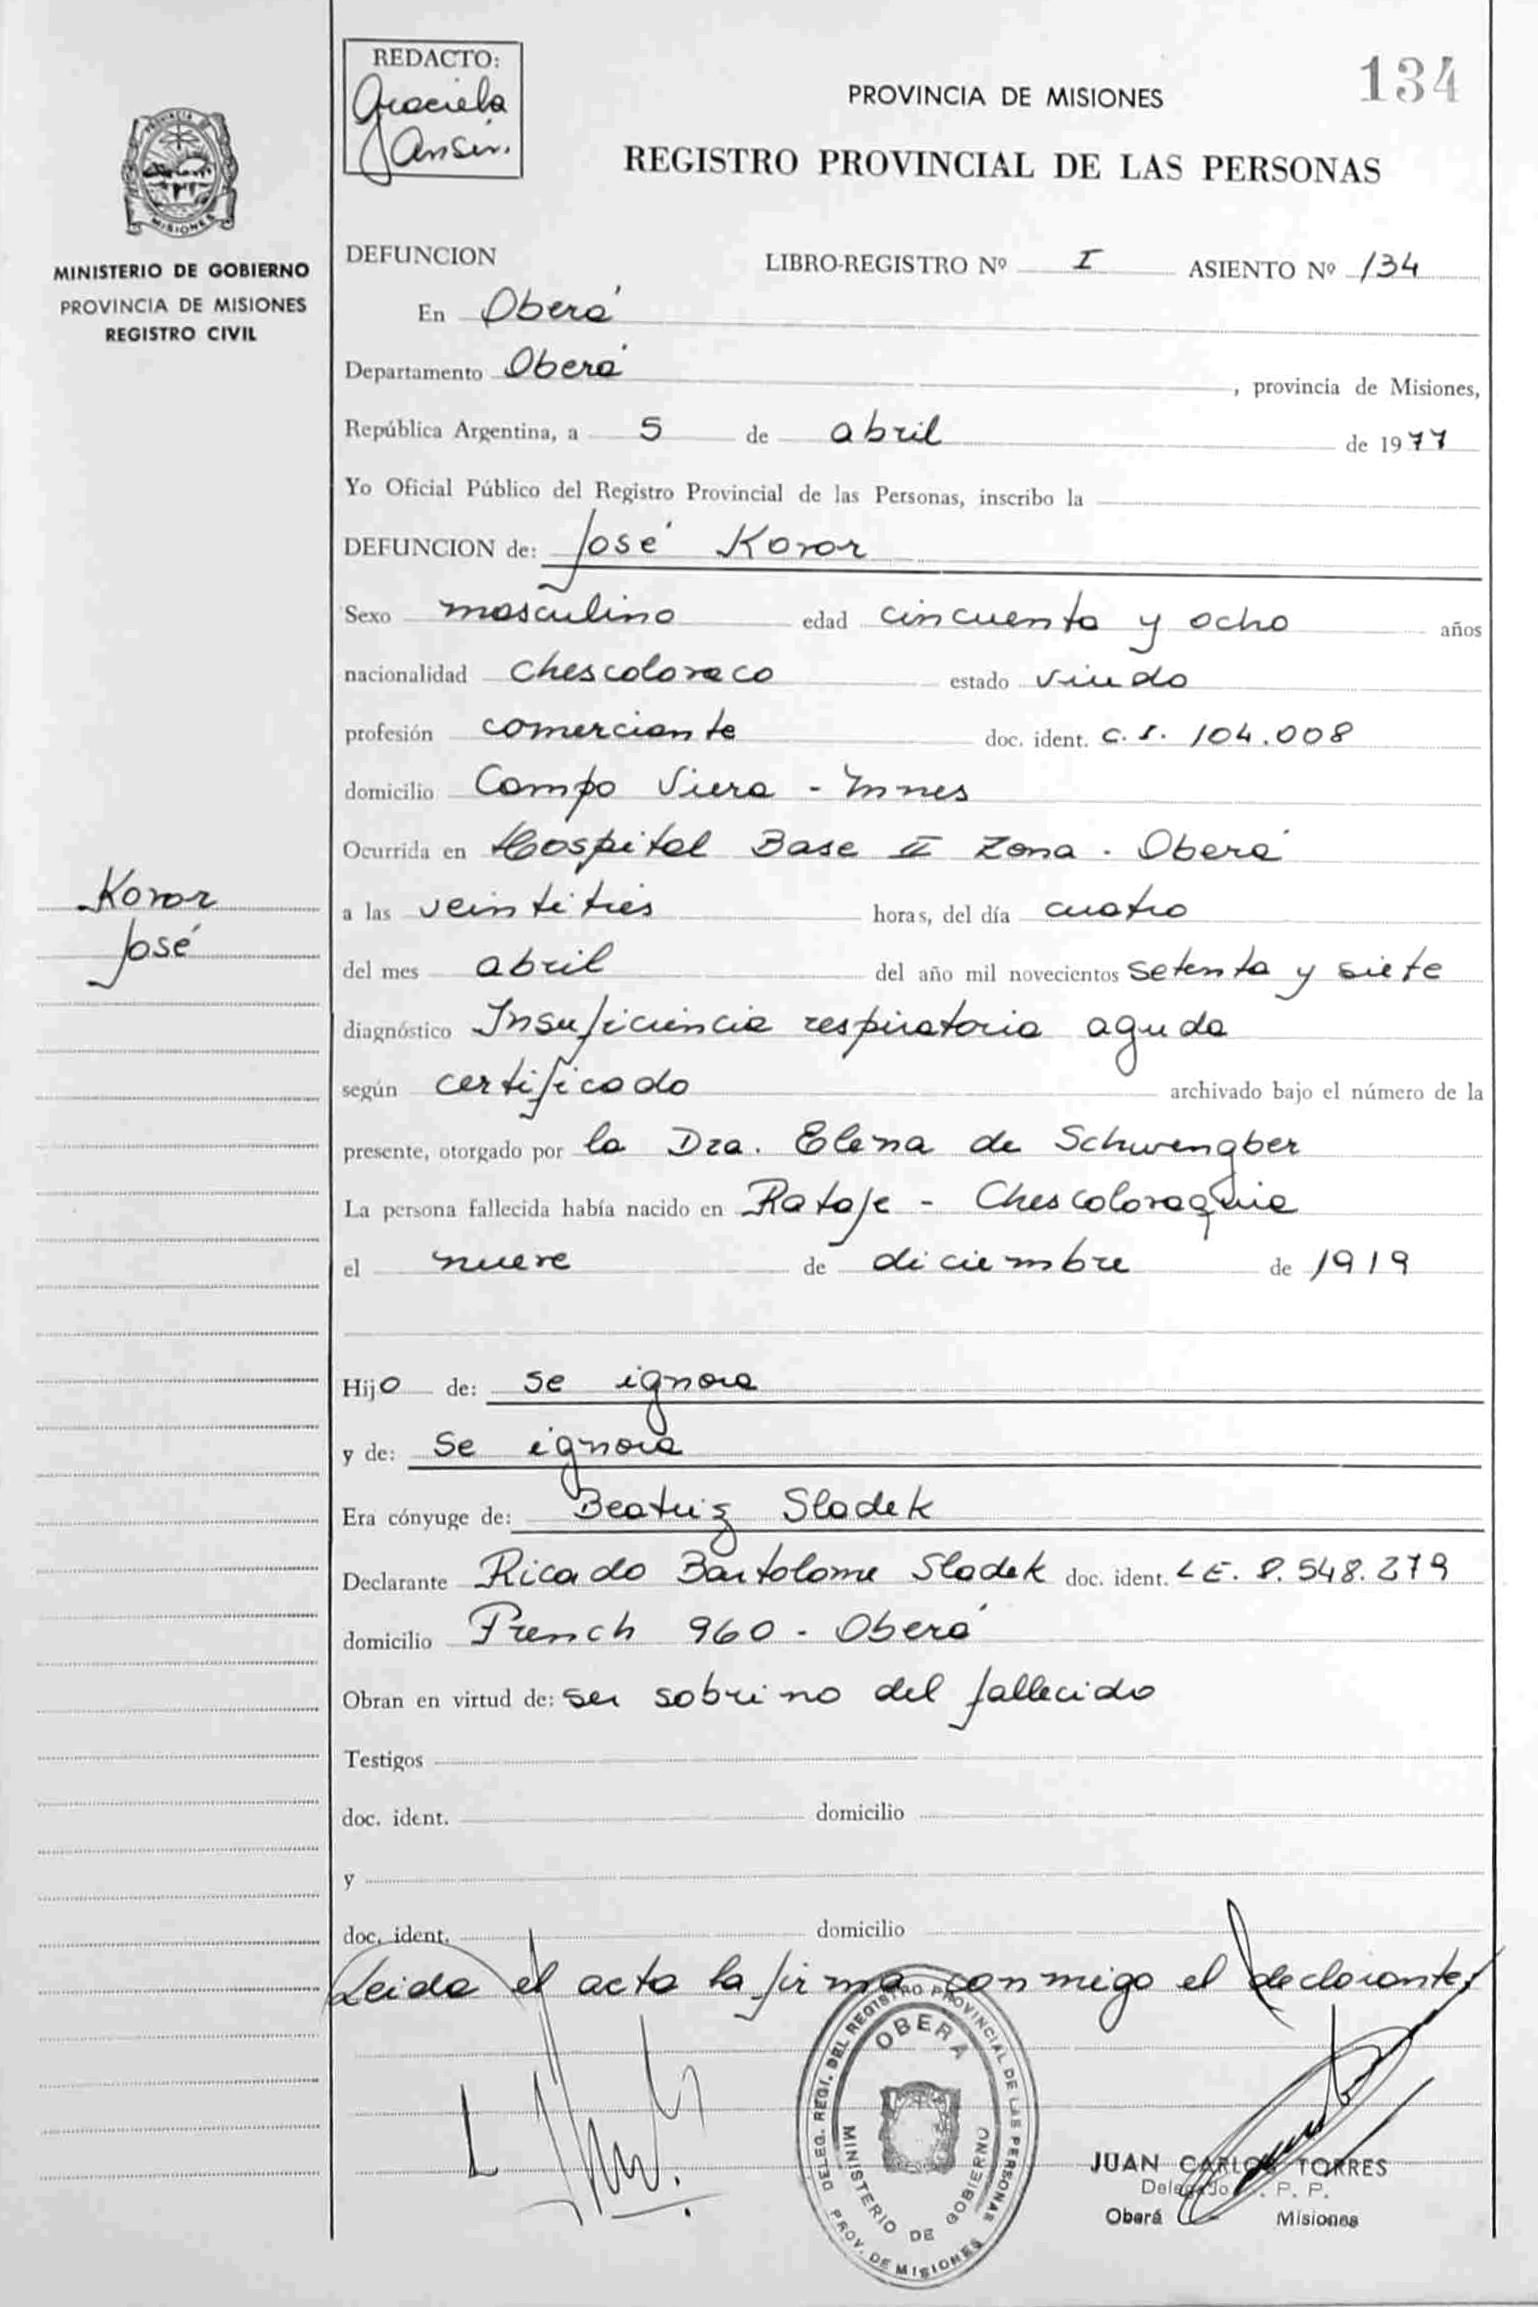 REDACTO:
Graciela
Jansin.
134
PROVINCIA DE MISIONES
REGISTRO PROVINCIAL DE LAS PERSONAS
MISIONES
MINISTERIO DE GOBIERNO
PROVINCIA DE MISIONES
REGISTRO CIVIL
DEFUNCION LIBRO-REGISTRO Nº I ASIENTO Nº 134
En Oberá
Departamento Oberá, provincia de Misiones,
República Argentina, a 5 de abril de 1977
Yo Oficial Público del Registro Provincial de las Personas, inscribo la
DEFUNCION de: José Kovar
Sexo masculino edad cincuenta y ocho años
nacionalidad Chescolovaco estado viudo
profesión comerciante doc. ident. C.I. 104.008
domicilio Campo Viera - Mnes
Ocurrida en Hospital Base II Zona - Oberá
Kovar
José
a las veintitrés horas, del día cuatro
del mes abril del año mil novecientos setenta y siete
diagnóstico Insuficiencia respiratoria aguda
según certificado archivado bajo el número de la
presente, otorgado por la Dra. Elena de Schwengber
La persona fallecida había nacido en Rataje - Chescolovaquia
el nueve de diciembre de 1919
Hijo de: se ignora
y de: se ignora
Era cónyuge de: Beatriz Sladek
Declarante Ricardo Bartolome Sladek doc. ident. LE. 8.548.279
domicilio French 960 - Oberá
Obran en virtud de: ser sobrino del fallecido
Testigos
doc. ident. domicilio
y
doc. ident. domicilio
Leida el acta la firma conmigo el declarante.
DELEG. REGI. DEL REGISTRO PROVINCIAL DE LAS PERSONAS
OBERA
MINISTERIO DE GOBIERNO
PROV. DE MISIONES
JUAN CARLOS TORRES
Delegado R. P. P.
Oberá Misiones